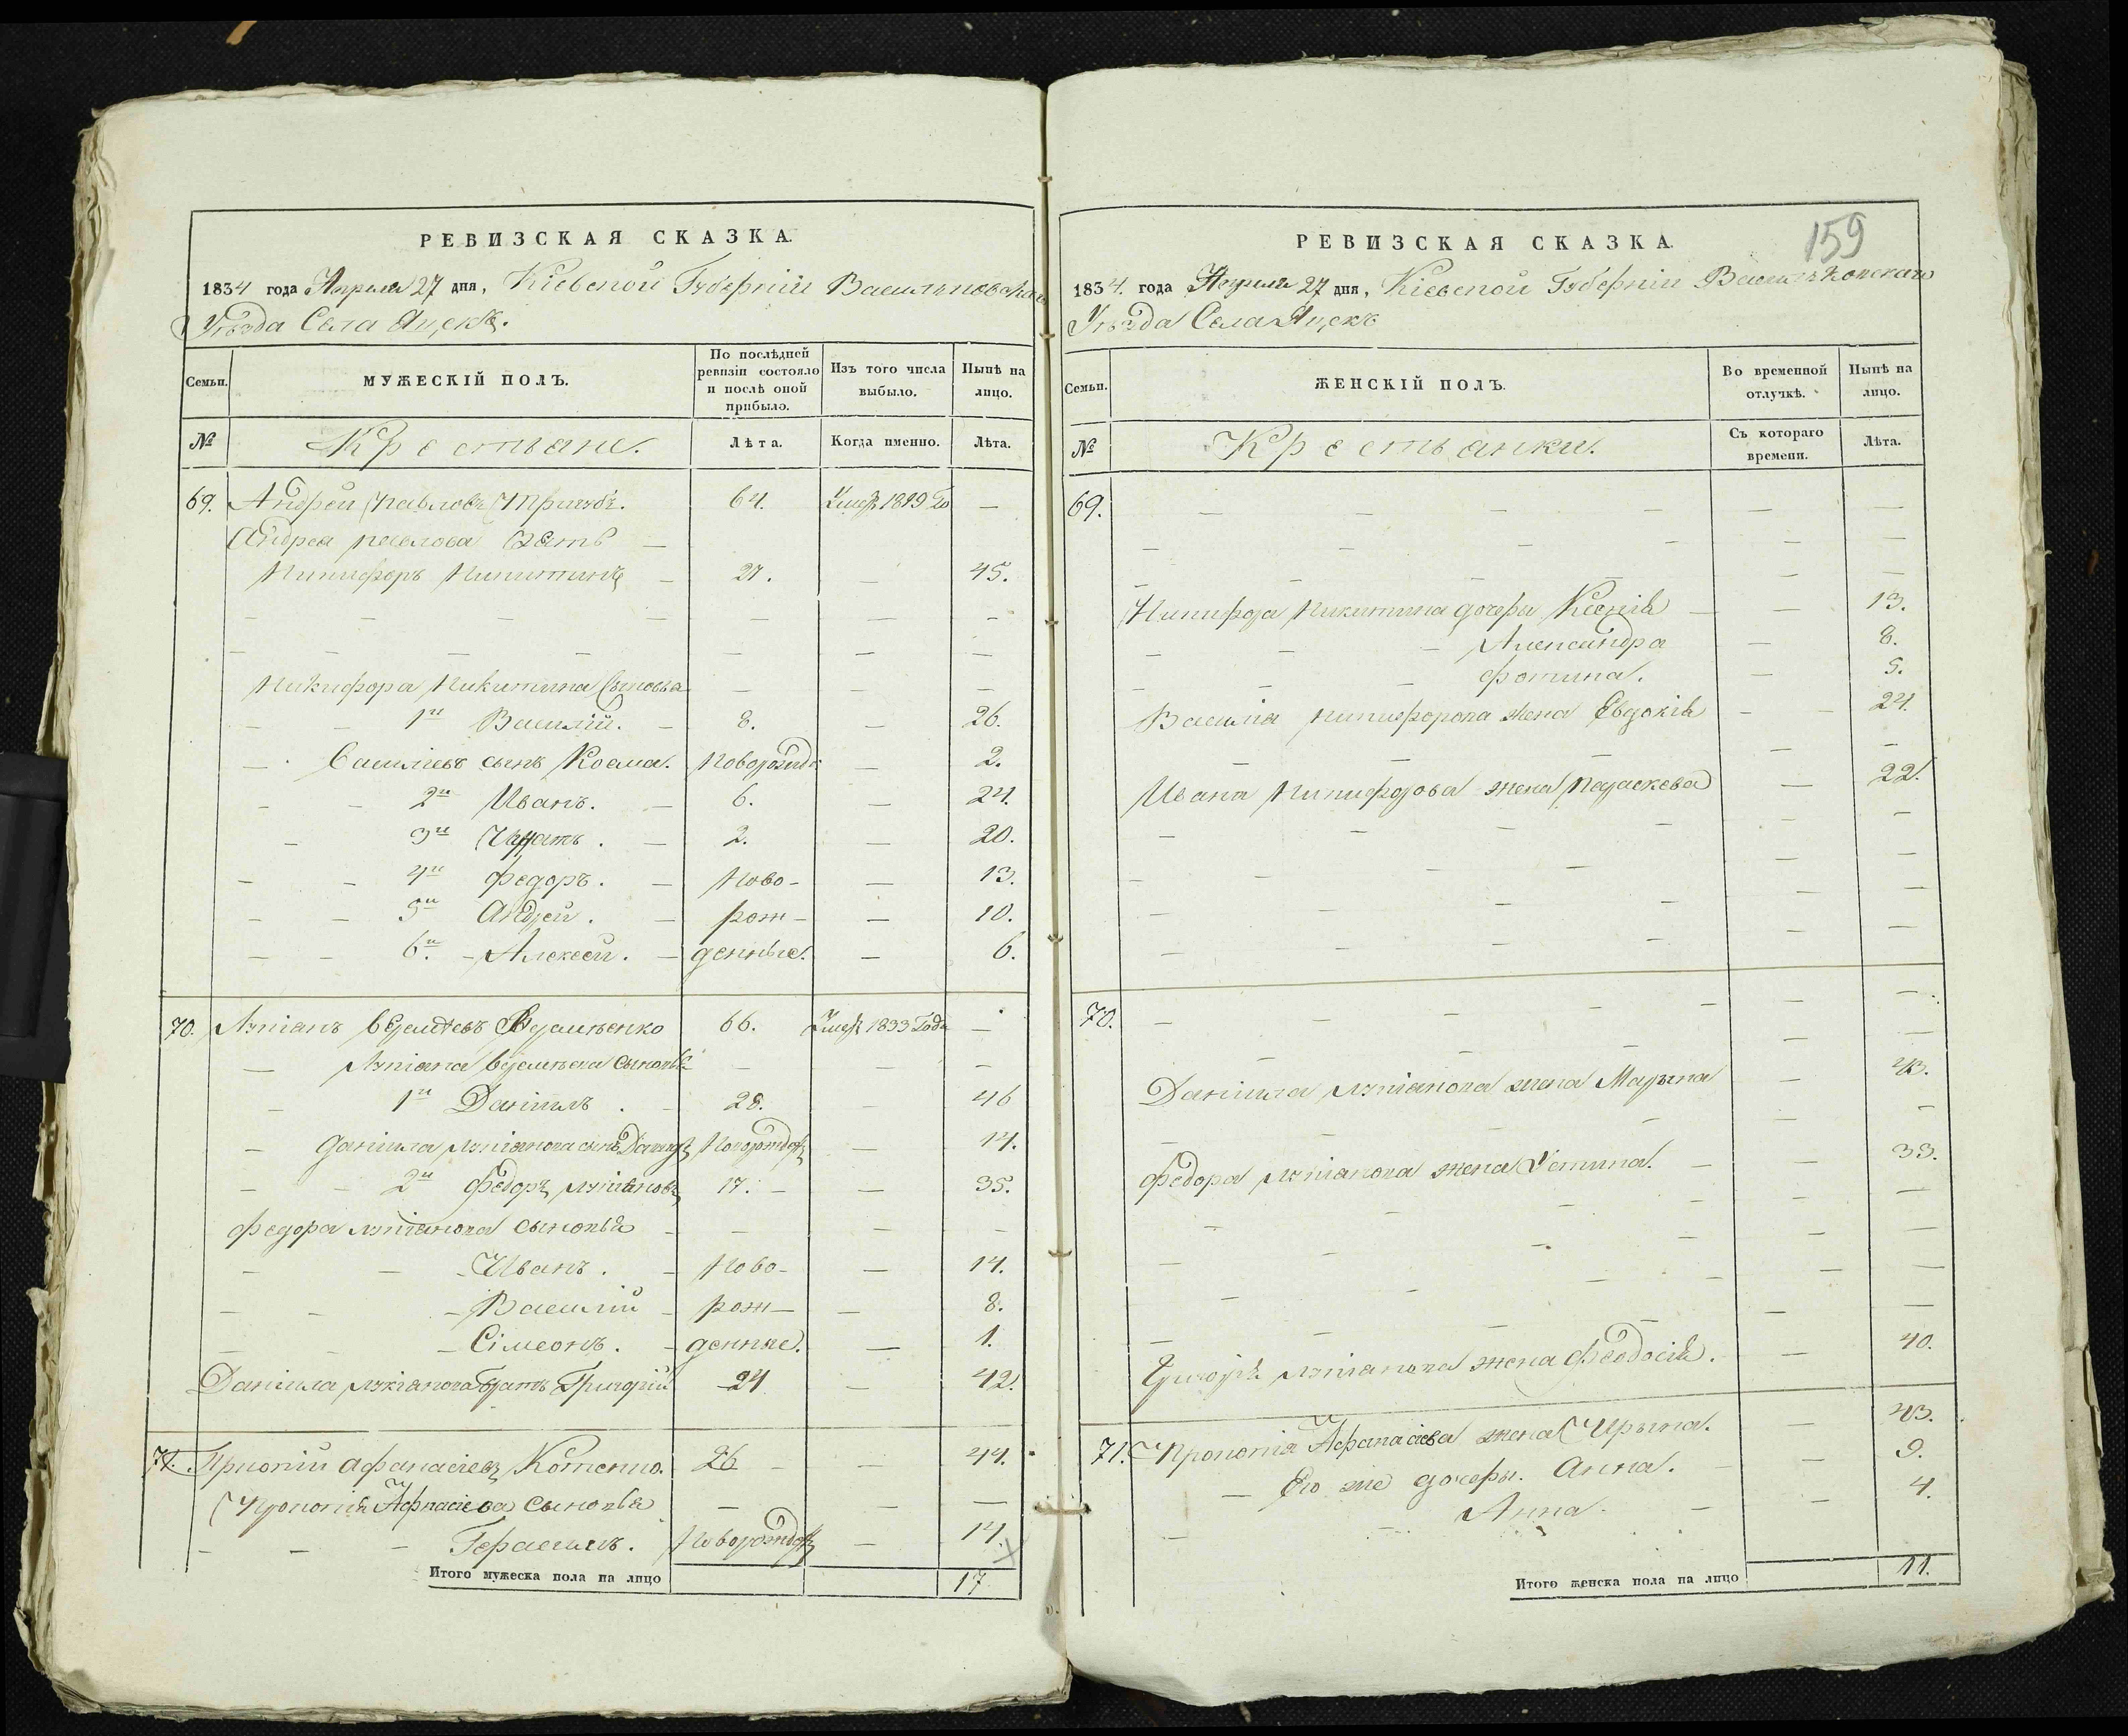 РЕВИЗСКАЯ СКАЗКА.
1834 года Апреля 27 дня, Кіевской Губерніи Васильковскаго
Уѣзда Села Яцекъ.
Семьи.
МУЖЕСКІЙ ПОЛЪ.
По послѣдней ревизіи состояло и послѣ оной прибыло.
Изъ того числа выбыло.
Нынѣ на лицо.
№ Крестьяне. Лѣта. Когда именно. Лѣта.
69. Андрей Павловъ 64. —
Андрея Павлова зять —
Никифоръ Никитинъ — 27. — 45.
— — — — — — -
— — — — — — —
Никифора Никитина Сыновья — — —
— — 1й Василій. — 8. — 26.
— Василіевъ сынъ Козма. Новорожд: — 2.
- - 2й Иванъ. — 6. — 24.
- 3й Игнатъ . — 2. — 20.
- - 4й Федоръ . — Ново- — 13.
- - 5й Андрей . — рож- — 10.
— — 6й. - Алексей. — денные. — 6.
70. Лукіанъ 66. Умеръ 1833 Года —
— Лукіана сыновья — — —
- 1й Даніилъ . - 28. — 46
— Даніила Лукіанова сынъ — 14.
- - 2й Федоръ Лукіановъ 17. - — 35.
Федора Лукіанова сыновья - — — -
- — - Иванъ . - Ново- — 14.
— - - Василій - рож— — 8.
— - - Сімеонъ . - денные. — 1.
Даніила Лукіанова братъ Григорій 24 — 42.
71. Прокопій Афанасіевъ Котенко. 26 - — 44.
Прокопія Афанасіева Сыновья — — —
- — - Герасимъ. Новорожденъ — 14.
Итого мужеска пола на лицо 17
159
РЕВИЗСКАЯ СКАЗКА.
1834. года Апреля 27 дня, Кіевской Губерніи Васильковскаго
Уѣзда Села Яцекъ
Семьи.
ЖЕНСКІЙ ПОЛЪ.
Во временной отлучкѣ.
Нынѣ на лицо.
№ Крестьянки. Съ котораго времени. Лѣта.
69. — — — — — —
— — — - — —
— — — — — —
Никифора Никитина дочери Ксенія — — 13.
— - - Александра — 8.
- - — Фотина. — 5.
Василія Никифорова жена Евдокія - — 24.
— — — — -
Ивана Никифорова жена Параскева — 22.
— — — — — -
— — — — —
— — — — — —
— — — — — —
70. — — — — — —
— — — — — —
Даніила Лукіанова жена Марына — 43.
— — — — — -
Федора Лукіанова жена Устина. — — 33.
- — — — —
— — - — —
— — — — —
— — — — —
Григорія Лукіанова жена Феодосія. — 40.
71. Прокопія Афанасіева жена Ирына. — 43.
— Его же дочеры. Анна. — — 9.
— — Анна. — — 4.
Итого женска пола на лицо 11.